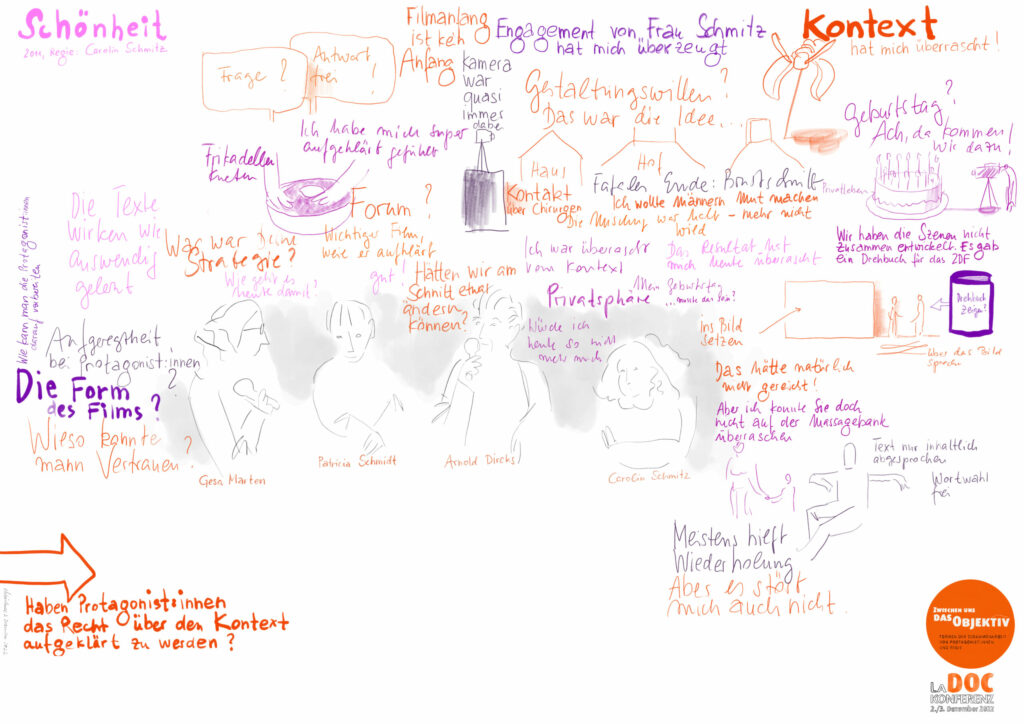 Schönheit
2011, Regie: Carolin Schmitz
Frage?
Antwort
frei !
Filmanfang
ist kein
Anfang
Kamera
war
quasi
immer
dabei
Engagement von Frau Schmitz
hat mich überzeugt
Kontext
hat mich überrascht!
Gestaltungswillen?
Das war die Idee...
Geburtstag?
Ach, da kommen
wir dazu!
Privatleben
Ich habe mich super
aufgeklärt gefühlt
Frikadellen
kneten
Haus
Hof
Kontakt
über Chirurgen
Ende: Brustschnitt
Ich wollte Männern Mut machen
Die Mischung war
mehr nicht
wird
Forum?
Wichtiger Film,
weil er aufklärt
gut!
Die Texte
wirken wie
auswendig
gelernt
Was war Deine
Strategie?
Wie geht es
heute damit?
Hätten wir am
Schnitt etwas
ändern
können?
Ich war überrascht
vom Kontext
Das Resultat hat
mich heute überrascht
Privatsphäre
Mein Geburtstag
...musste das sein?
Würde ich
heute so nicht
mehr machen
Wir haben die Szenen nicht
zusammen entwickelt. Es gab
ein Drehbuch für das ZDF
Drehbuch
zeigen?
ins Bild
setzen
über das Bild
sprechen
Das hätte natürlich
mehr gereicht!
Aber ich konnte Sie doch
nicht auf der Massagebank
überraschen
Wie kann man die Protagonist:innen
darauf vorbereiten
Aufgeregtheit
bei Protagonist:innen
Die Form
des Films?
Wieso konnte
mann Vertrauen?
Gesa Marten
Patricia Schmidt
Arnold Dircks
Carolin Schmitz
Text nur inhaltlich
abgesprochen
Wortwahl
frei
Meistens hilft
Wiederholung
Aber es stört
mich auch nicht.
Haben Protagonist:innen
das Recht über den Kontext
aufgeklärt zu werden?
Zwischen uns
das Objektiv
Formen der Zusammenarbeit
von Protagonist:innen
und Regie
LA DOC
KONFERENZ
2./3. Dezember 2022